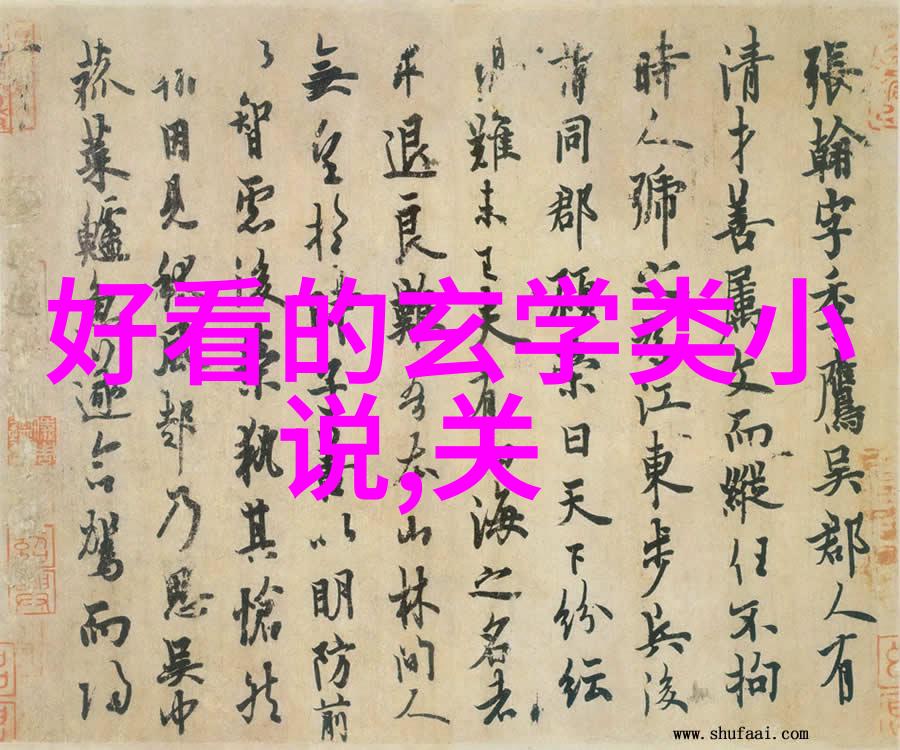 張翰字季鷹吳郡人有
清才善屬文而縱任不拘
時人號之為江東步兵後
謂同郡顧榮曰天下紛紜
難未已夫有四海之名者
求退良難吾本山林間人
無望於時子善以明防前
以智慮後榮執其愴然
翰因見秋風起乃思吳中
菰菜鱸魚遂命駕而歸
好看的玄学类小
说,关
www.shufaai.com